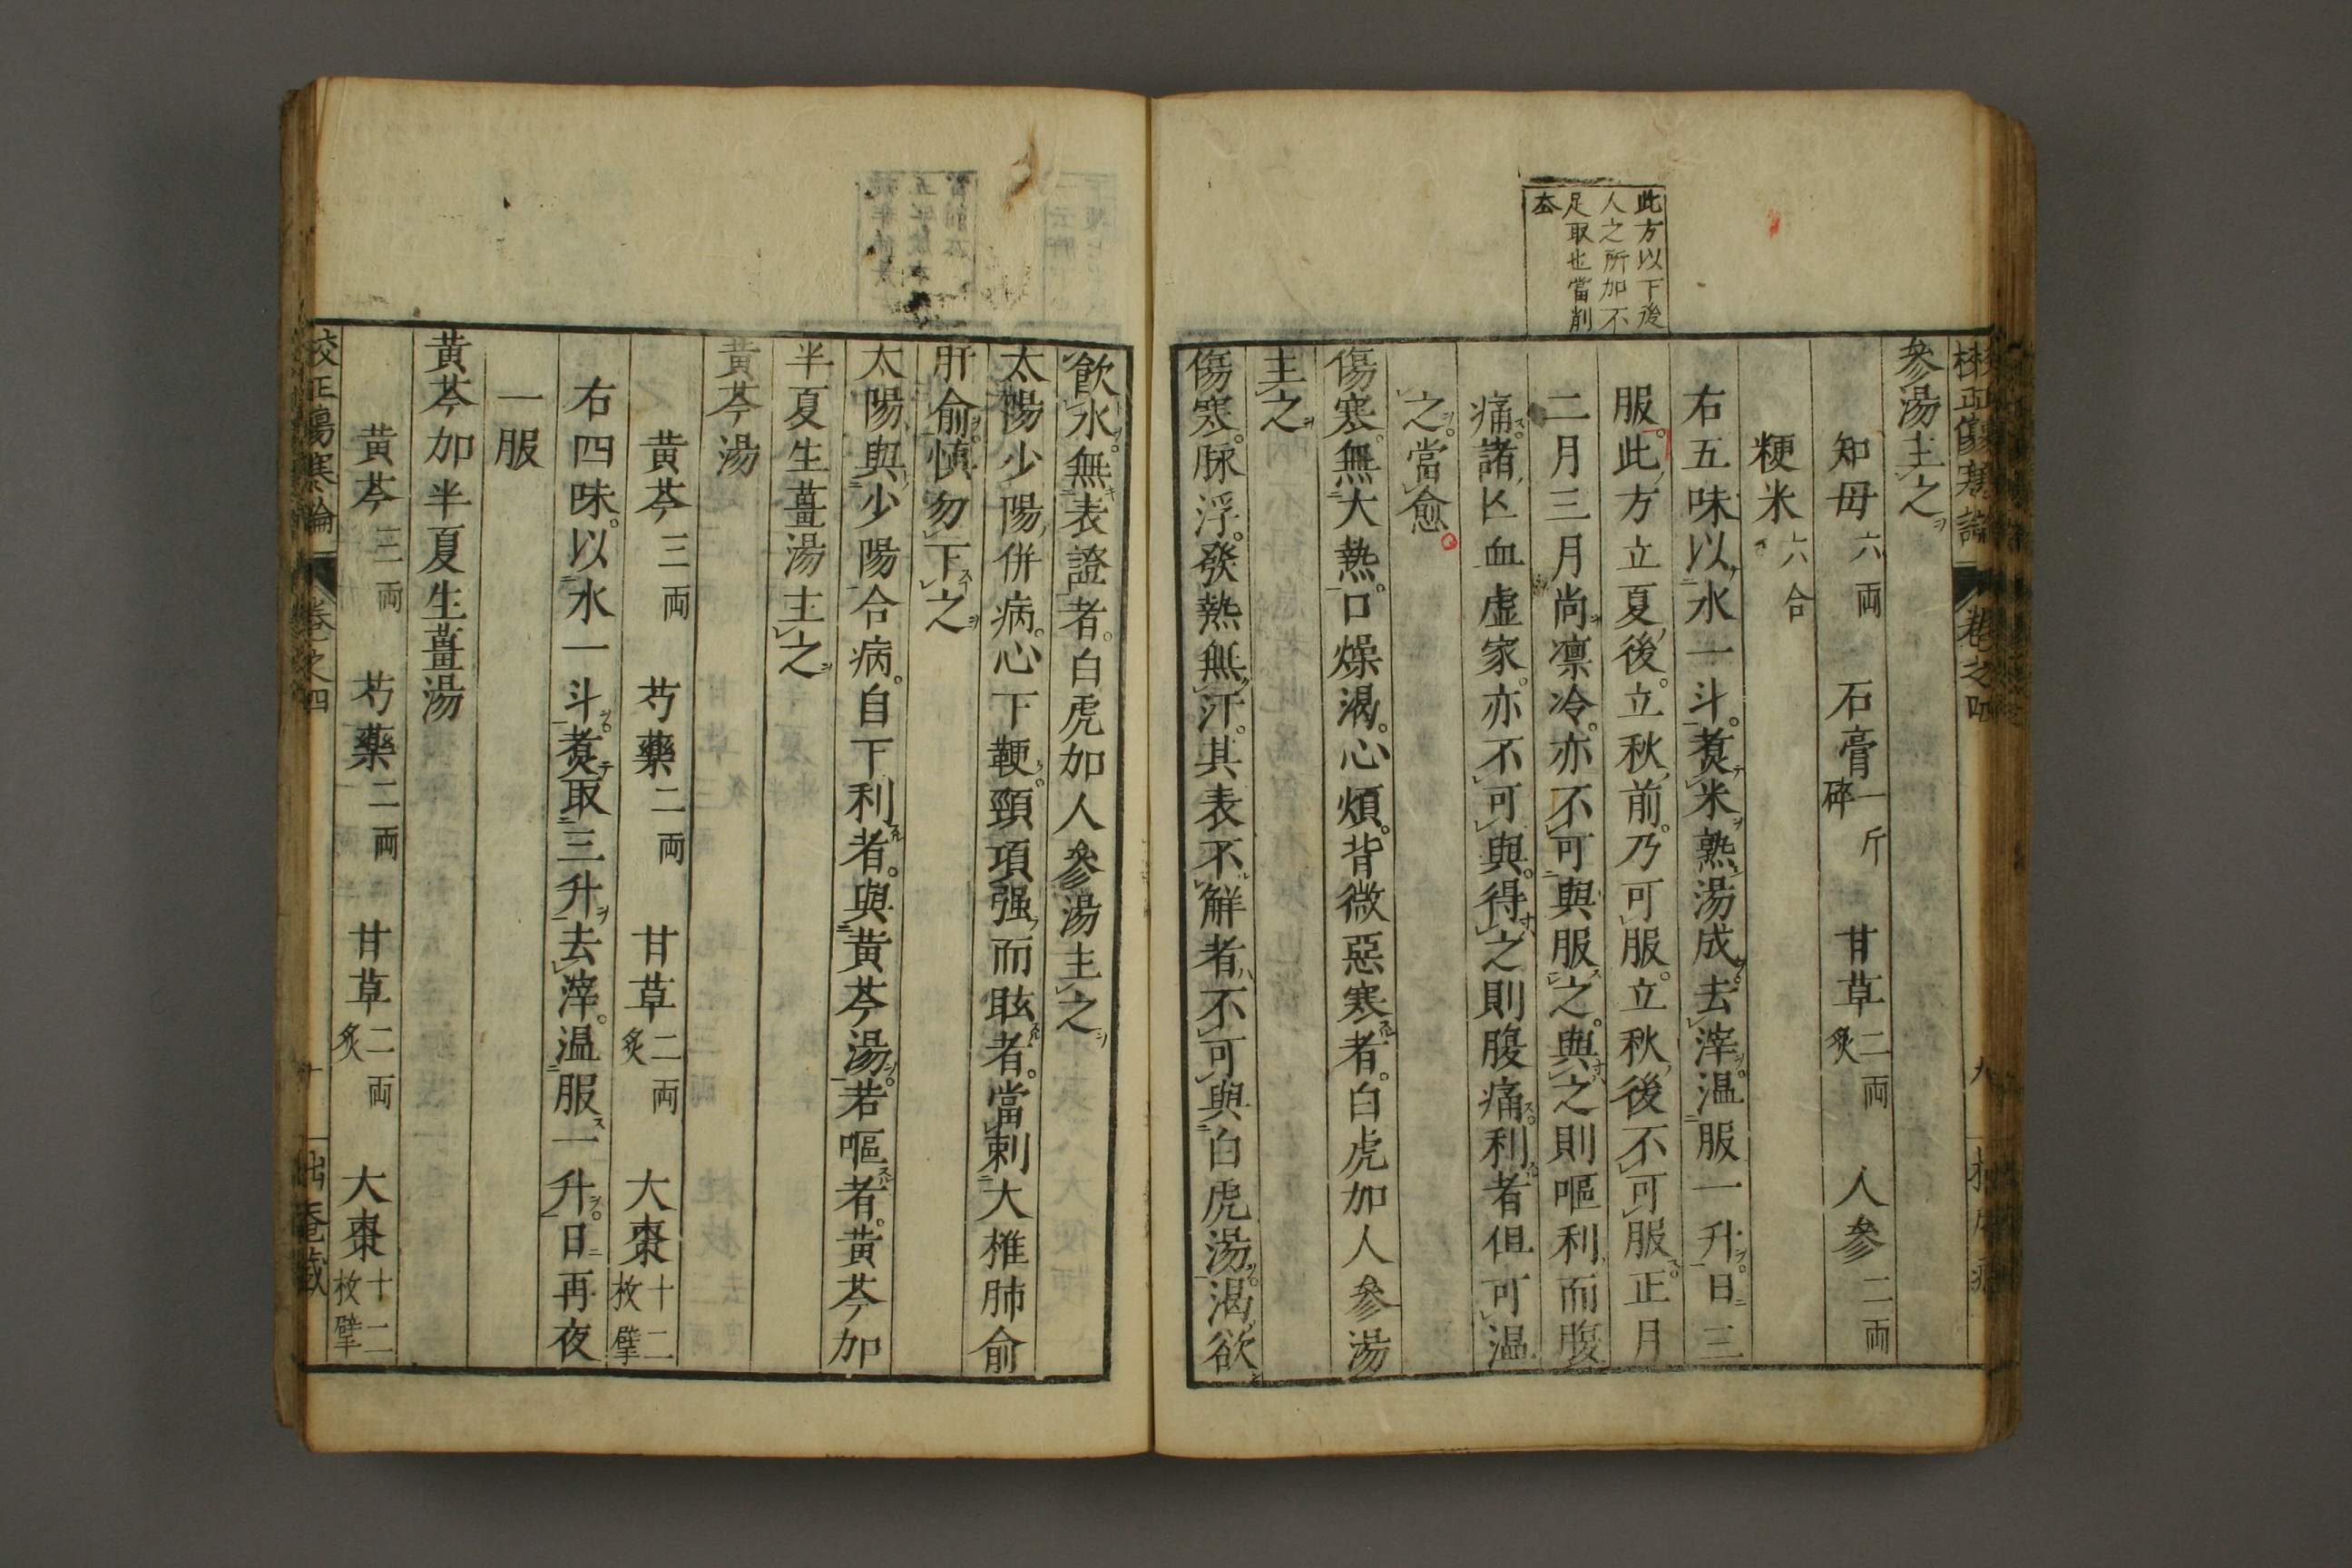 校正傷寒論 卷之四
參湯主之
知母六両 石膏一斤碎 甘草二両炙 人參二両
粳米六合
右五味以水一斗煑米熟湯成去滓温服一升日三
服此方立夏後立秋前乃可服立秋後不可服正月
二月三月尚凛冷亦不可與服之與之則嘔利而腹
痛諸亾血虛家亦不可與得之則腹痛利者但可温
之當愈
傷寒無大熱口燥渴心煩背微惡寒者白虎加人參湯
主之
傷寒脉浮發熱無汗其表不解者不可與白虎湯渴欲
此方以下後
人之所加不
足取也當削
厺
飲水無表證者白虎加人參湯主之
太陽少陽併病心下鞕頸項强而眩者當刺大椎肺俞
肝俞慎勿下之
太陽與少陽合病自下利者與黃芩湯若嘔者黃芩加
半夏生薑湯主之
黃芩湯
黃芩三両 芍藥二両 甘草二両炙 大棗十二枚擘
右四味以水一斗煑取三升去滓温服一升日再夜
一服
黃芩加半夏生薑湯
黃芩三両 芍藥二両 甘草二両炙 大棗十二枚擘
校正傷寒論 卷之四 十 拙庵藏